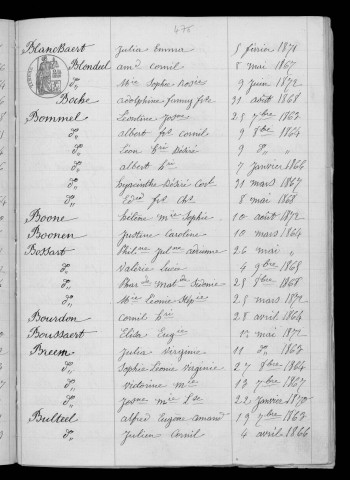 475
Blanckaert Julia Emma 5 février 1871
Blondeel amd Cornil 8 mai 1867
Do Mie Sophie Rosie 9 juin 1872
Boche adolphine fanny fse 31 août 1868
Bommel Léontine Josne 25 7bre 1863
Do albert fs cornil 9 8bre 1864
Do Léon hri Désiré 9 do "
Do albert hri 7 janvier 1866
Do hyacinthe Désiré Cost 31 mars 1867
Do Edrd fs Chs 8 mai 1868
Boone hélène Mie Sophie 10 août 1872
Boonen Justine Caroline 10 mars 1864
Bossart Philne 26 mai "
Do Valérie Lucie 4 9bre 1865
Do 25 8bre 1868
Do Mie Léonie 25 mars 1871
Bourdon Cornil hri 28 avril 1864
Boussaert Elisa Eugie mai 1871
Breem Julia Virginie 11 do 1863
Do Sophie Léonie Virginie 27 8bre 1864
Do victorine Mie 13 7bre 1867
Do Josne Mie Lse 22 janvier 1870
Bulteel alfred Eugène amand 19 7bre 1863
Do Julien Cornil 4 avril 1866